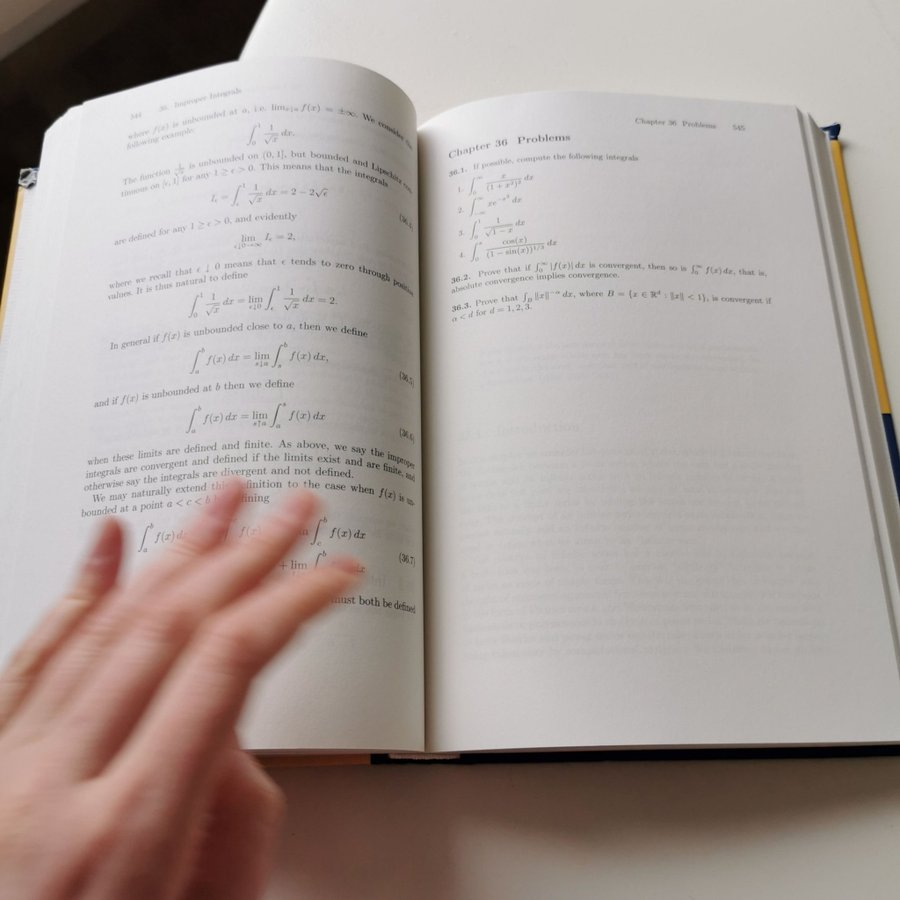 544 36. Improper Integrals
where f(x) is unbounded at a, i.e. lim_{x↓a} f(x) = ±∞. We consider the
following example:
∫_0^1 1/√x dx.
The function 1/√x is unbounded on (0, 1], but bounded and Lipschitz con-
tinuous on [ϵ, 1] for any 1 ≥ ϵ > 0. This means that the integrals
I_ϵ = ∫_ϵ^1 1/√x dx = 2 − 2√ϵ (36.4)
are defined for any 1 ≥ ϵ > 0, and evidently
lim I_ϵ = 2,
where we recall that ϵ ↓ 0 means that ϵ tends to zero through positive
values. It is thus natural to define
∫_0^1 1/√x dx = lim_{ϵ↓0} ∫_ϵ^1 1/√x dx = 2.
In general if f(x) is unbounded close to a, then we define
∫_a^b f(x) dx = lim_{s↓a} ∫_s^b f(x) dx, (36.5)
and if f(x) is unbounded at b then we define
∫_a^b f(x) dx = lim_{s↑a} ∫_a^s f(x) dx (36.6)
when these limits are defined and finite. As above, we say the improper
integrals are convergent and defined if the limits exist and are finite, and
otherwise say the integrals are divergent and not defined.
We may naturally extend this definition to the case when f(x) is un-
bounded at a point a < c < b by defining
∫_a^b f(x) dx f(x) ∫_c^b f(x) dx
+ lim ∫^b dx (36.7)
must both be defined
Chapter 36 Problems 545
Chapter 36 Problems
36.1. If possible, compute the following integrals
1. ∫_0^∞ x/(1 + x²)² dx
2. ∫_{−∞}^∞ xe^{−x²} dx
3. ∫_0^1 1/√(1 − x) dx
4. ∫_0^π cos(x)/(1 − sin(x))^{1/3} dx
36.2. Prove that if ∫_0^∞ |f(x)| dx is convergent, then so is ∫_0^∞ f(x) dx, that is,
absolute convergence implies convergence.
36.3. Prove that ∫_B ‖x‖^{−α} dx, where B = {x ∈ ℝ^d : ‖x‖ < 1}, is convergent if
α < d for d = 1, 2, 3.